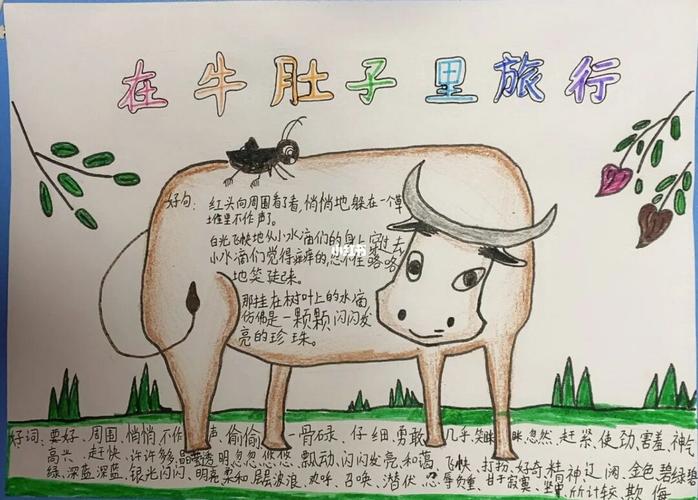 在牛肚子里旅行
好句: 红头向周围看了看,悄悄地躲在一个草
土堆里不作声了。
白光飞快地从小水滴们的身上穿过去
小水滴们觉得痒痒的,忍不住咯咯
地笑起来。
那挂在树叶上的水滴
仿佛是一颗颗闪闪发
亮的珍珠。
好词: 要好、周围、悄悄、不作声、偷偷、骨碌、仔细、勇敢、几乎、笑眯眯、忽然、赶紧、使劲、害羞、神气
高兴、赶快、许许多、晶莹透明、忽忽悠悠、飘动、闪闪发亮、和蔼、飞快、打扮、好奇、精神、辽阔、金色、碧绿
绿、深蓝、深蓝、银光闪闪、明亮、柔和、层波浪、欢呼、召唤、潜伏、负重、甘于寂寞、所计较、欺侮